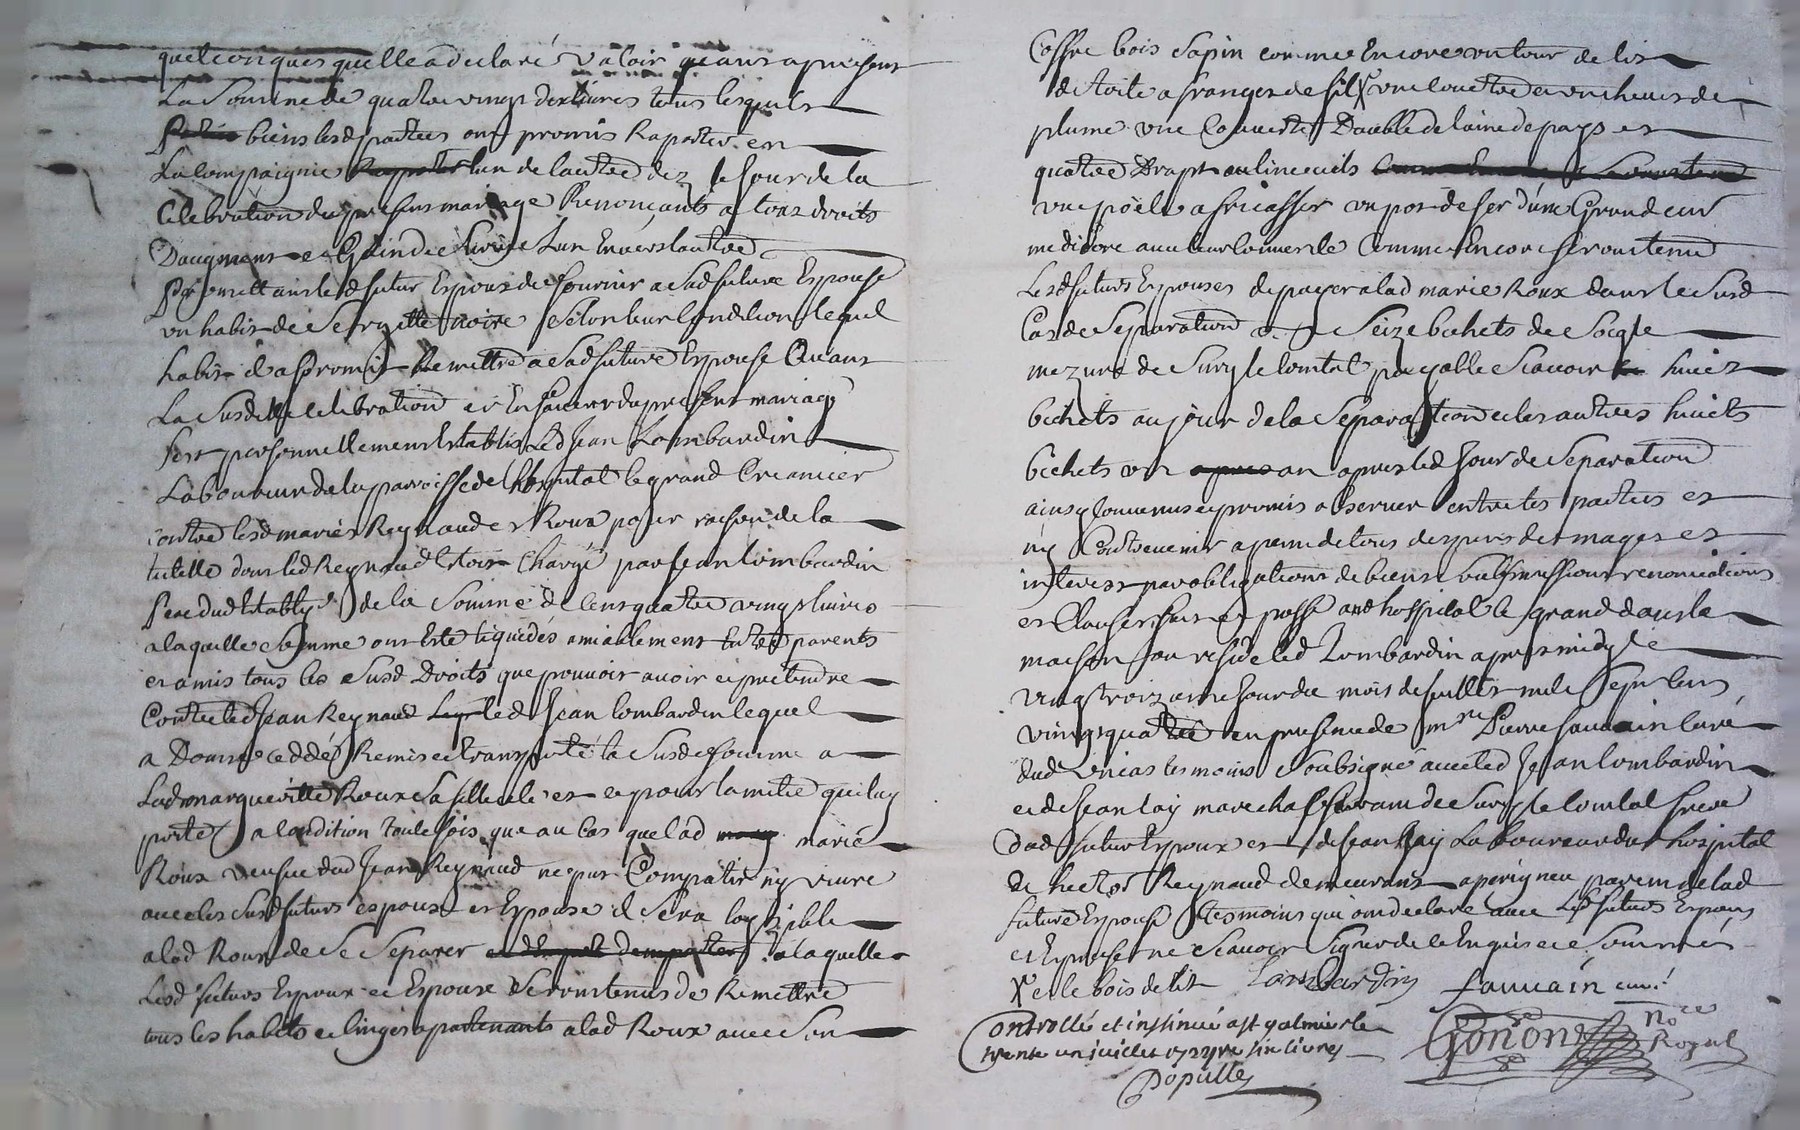 quelconques quelle a declaré valoir quant a present
La Somme de quatre vingt dix livres tous lesquels
biens lesd parties ont promis Raporter en
La Compaignie lun de lautre dez le Jour de la
Celebration du present mariage Renonçants a tous droits
Daugment et Gain de Survie Lun Envers lautre
Promettant led futur Espoux de fournir a Sad future Espouse
un habit de Sergette noire Selon leur Condition lequel
habit il a promis Remettre a Sad future Espouse Avant
La Susditte celebration et En faveur du present mariage
Sest personnellement Establis Led Jean Lombardin
Laboureur de la parroisse de Lhospital le grand Creancier
contre lesd mariés Reynaud et Roux pour raison de la
tutelle dont led Reynaud Estoit Chargé par Jean lombardin
Pere dud Estably de la Somme de Cent quatre vingt livres
a laquelle Somme ont Esté liquidés amiablement Entre parents
et amis tous les Susd Droits que pouvoit avoir et pretendre
Contre led Jean Reynaud led Jean lombardin lequel
a Donné ceddé Remis et transporté la Susde Somme a
Lad margueritte Roux Sa fille et pour lamitié quil luy
porte a Condition toutefois que au Cas que lad marie
Roux veufve dud Jean Reynaud ne put Compatir ny vivre
avec les Susd futurs espoux et Espouse il Sera loysible
a lad Roux de Se Separer a laquelle
Lesd futurs Espoux et Espouse Seront tenus de Remettre
tous les habits et linges apartenants a lad Roux avec Son
Coffre bois Sapin comme Encore un tour de lit
de toile a franges de fil X une Couette et un chevet de
plume une Couverte Double de laine de pays et
quatre Draps ou linceuils
une poële a fricasser un pot de fer d'une Grandeur
mediocre avec leur couvercle Comme Encore Seront tenu
Lesd futurs Espouses de payer a lad marie Roux dans le Susd
Cas de Separation Seize bichets de Seigle
mezure de Sury le Comtal payable Scavoir huict
bichets au jour de la Separation et les autres huicts
bichets un an apres led Jour de Separation
ainsy Convenus et promis observer entre les parties et
ny Contrevenir a peine de tous despens domages et
interest par obligations de biens Submissions renonciations
et Clauses fait et passé aud hospital le grand dans la
maison ou reside led Lombardin apres midy le
vingt troizieme Jour du mois de Juillet mil Sept cent
vingt quatre en presence de mre Pierre fauvain Curé
dud Unias tesmoins Soubsigné avec led Jean lombardin
et de Jean Lay marechal ferrant de Sury le Comtal frere
Dud futur Espoux et de Jean Lay Laboureur du hospital
de hector Reynaud demeurant a perigneu parein de lad
future Espouse tesmoins qui ont declaré avec Lesd futurs Espoux
et Espouse ne Scavoir Signer de ce Enquis et Sommés
X et le bois de lit Lombardin fauvain curé
Controllé et insinué a St galmier le Gonon Nore
trente un juillet livres Royal
Populle